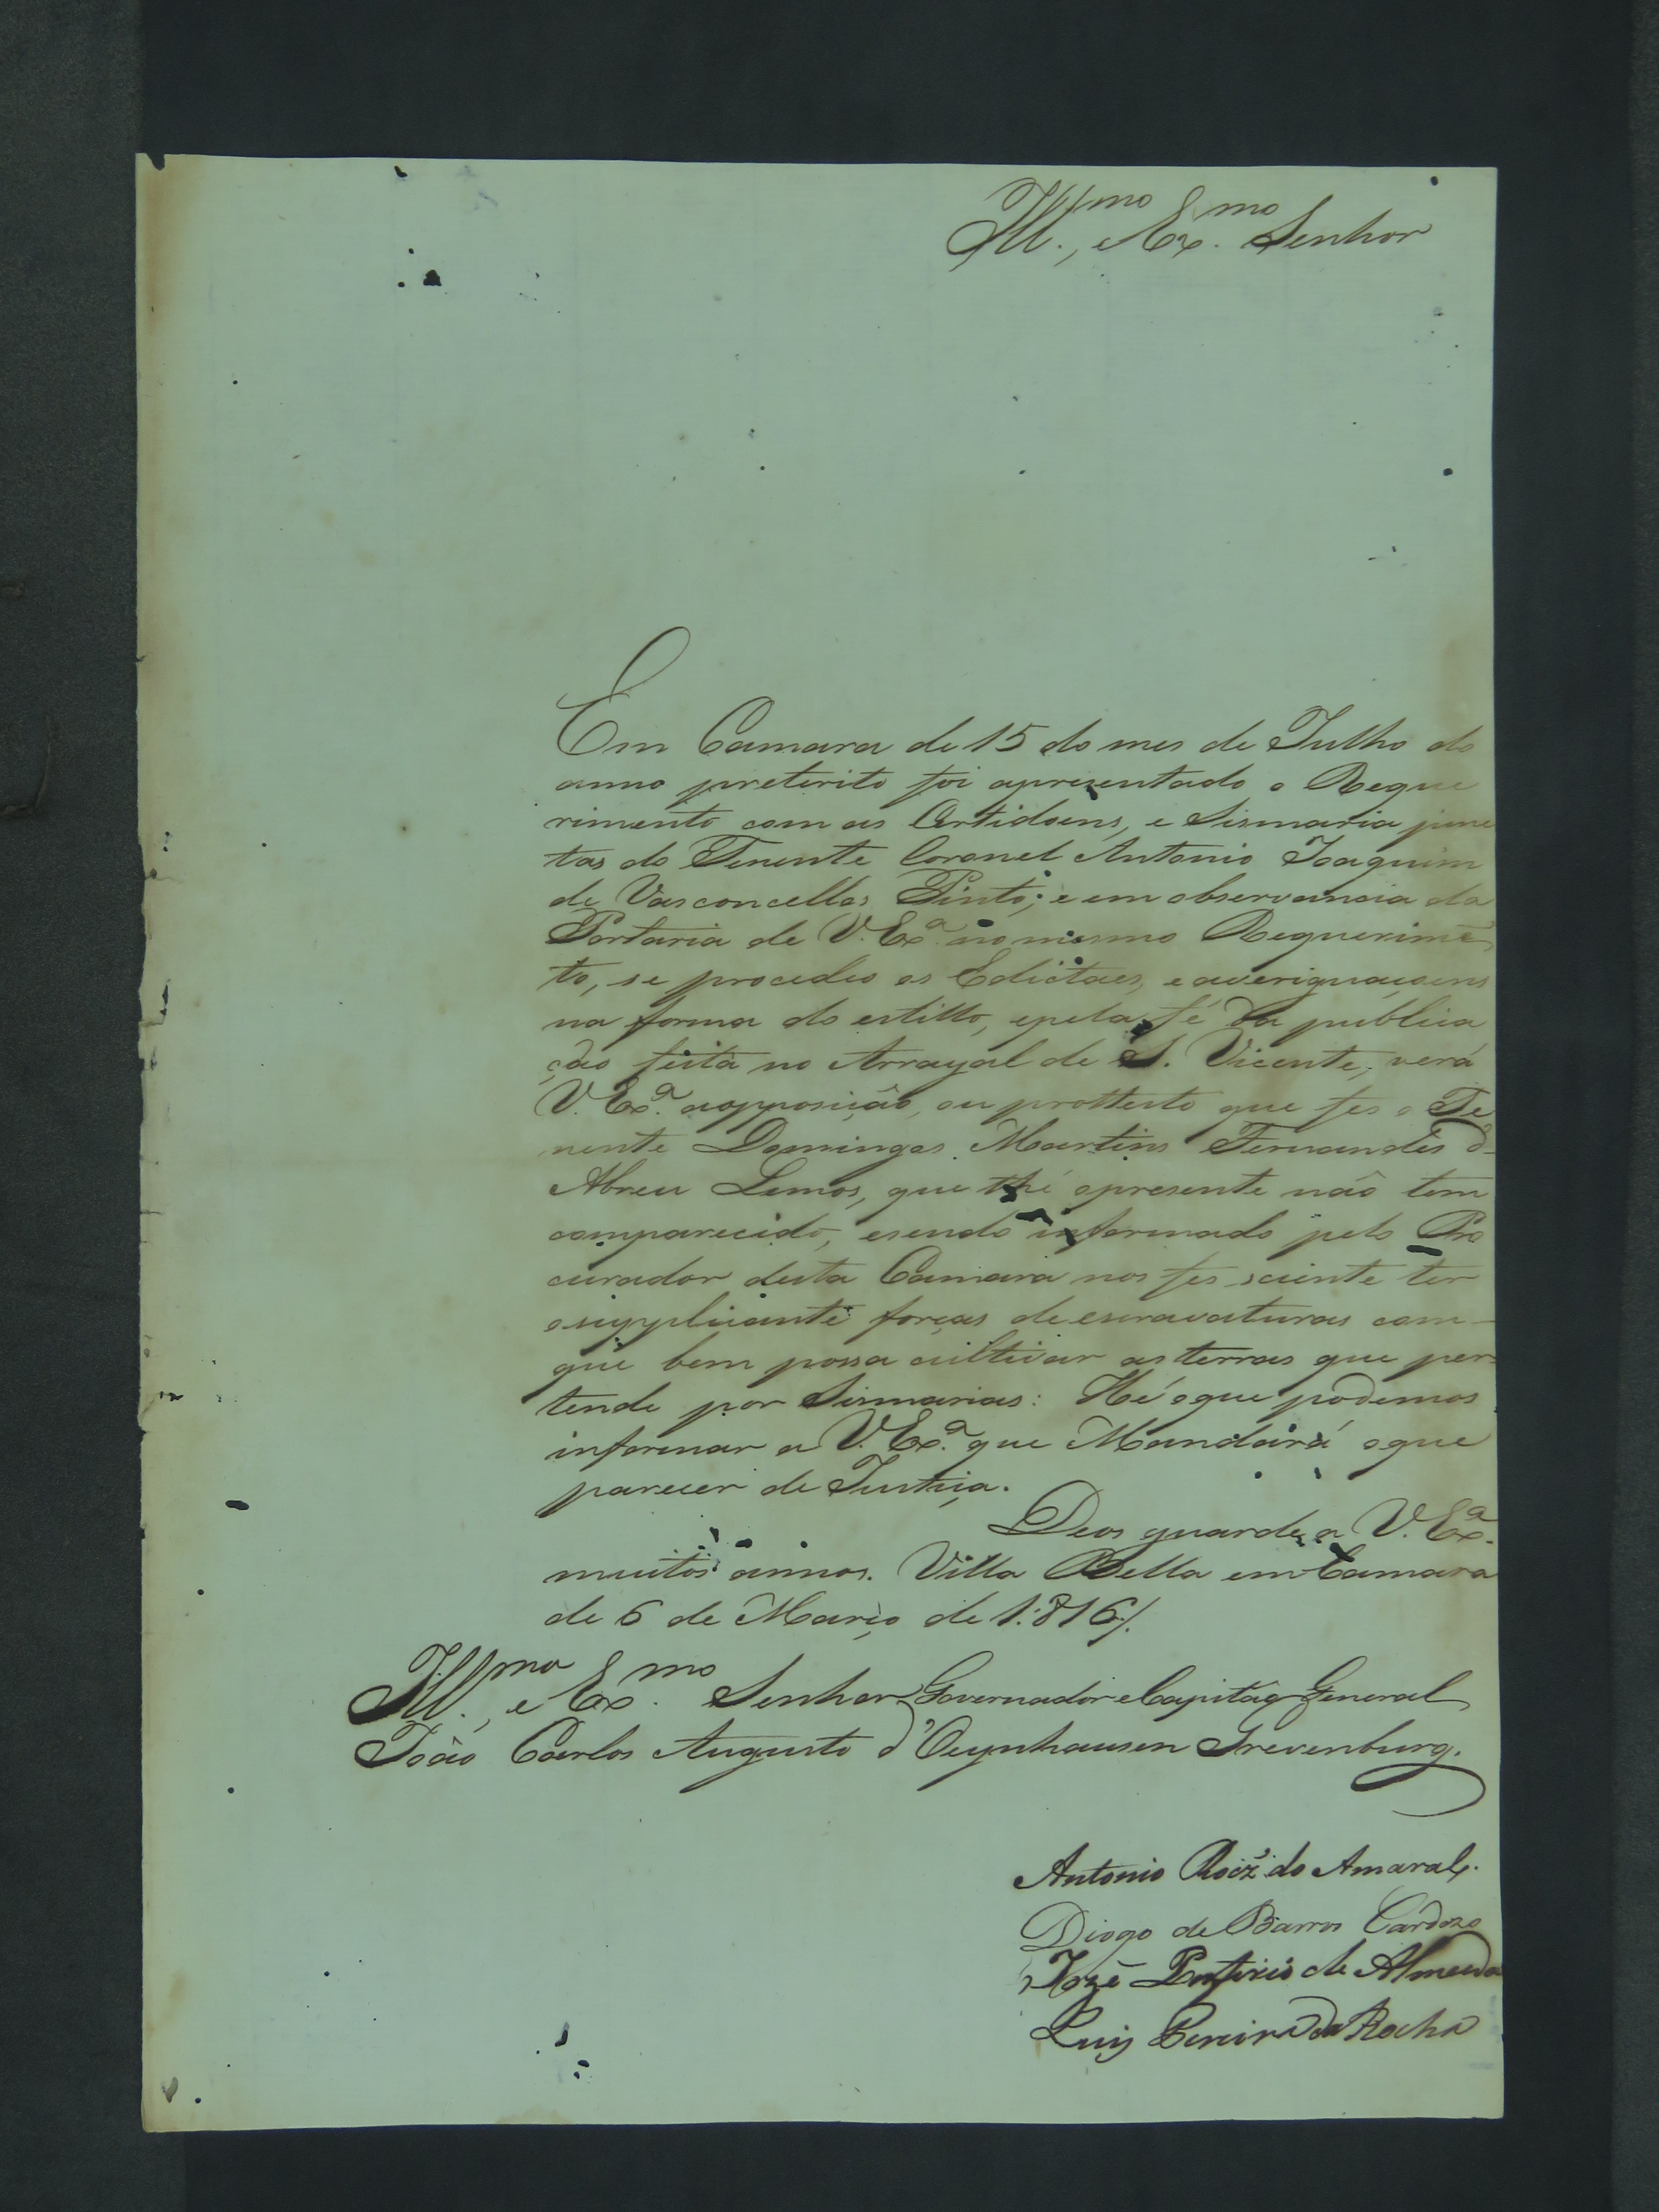 Ill.mo, e Ex.mo Senhor
Em Camara de 15 do mes de Julho do
anno preterito foi aprezentado o Reque
rimento com as Certidoens, e Sismaria junc
tas do Tenente Coronel Antonio Joaquim
de Vasconcellos Pinto; e em observancia da
Portaria de V. Exª no mesmo Requerimẽ
to, se procedeo os Edictaes, e averiguaçoens
na forma do estillo, epela fé da publica
ção feita no Arrayal de S. Vicente, verá
V. Exª. aopposição, ou prottesto que fes o Te
nente Domingos Martins Fernandes d'
Abreu Lemos, que thé opresente não tem
comparecido, esendo informado pelo Pro
curador desta Camara nos fes sciente ter
osupplicante forças de escravaturas com
que bem possa cultivar asterras que per
tende por Sismarias: Hé oque podemos
informar a V. Exª. que Mandará oque
parecer de Justiça.
Deos guarde a V. Exª.
muitos annos. Villa Bella em Camara
de 6 de Março de 1:816/.
Ill.mo, e Ex.mo Senhor Governador eCapitaõ General
João Carlos Augusto d'Oeynhausen Grevenburg.
Antonio Roiz' do Amaral.
Diogo de Barros Cardozo
Jozé Porfirio de Almeida
Luis Pereira da Rocha